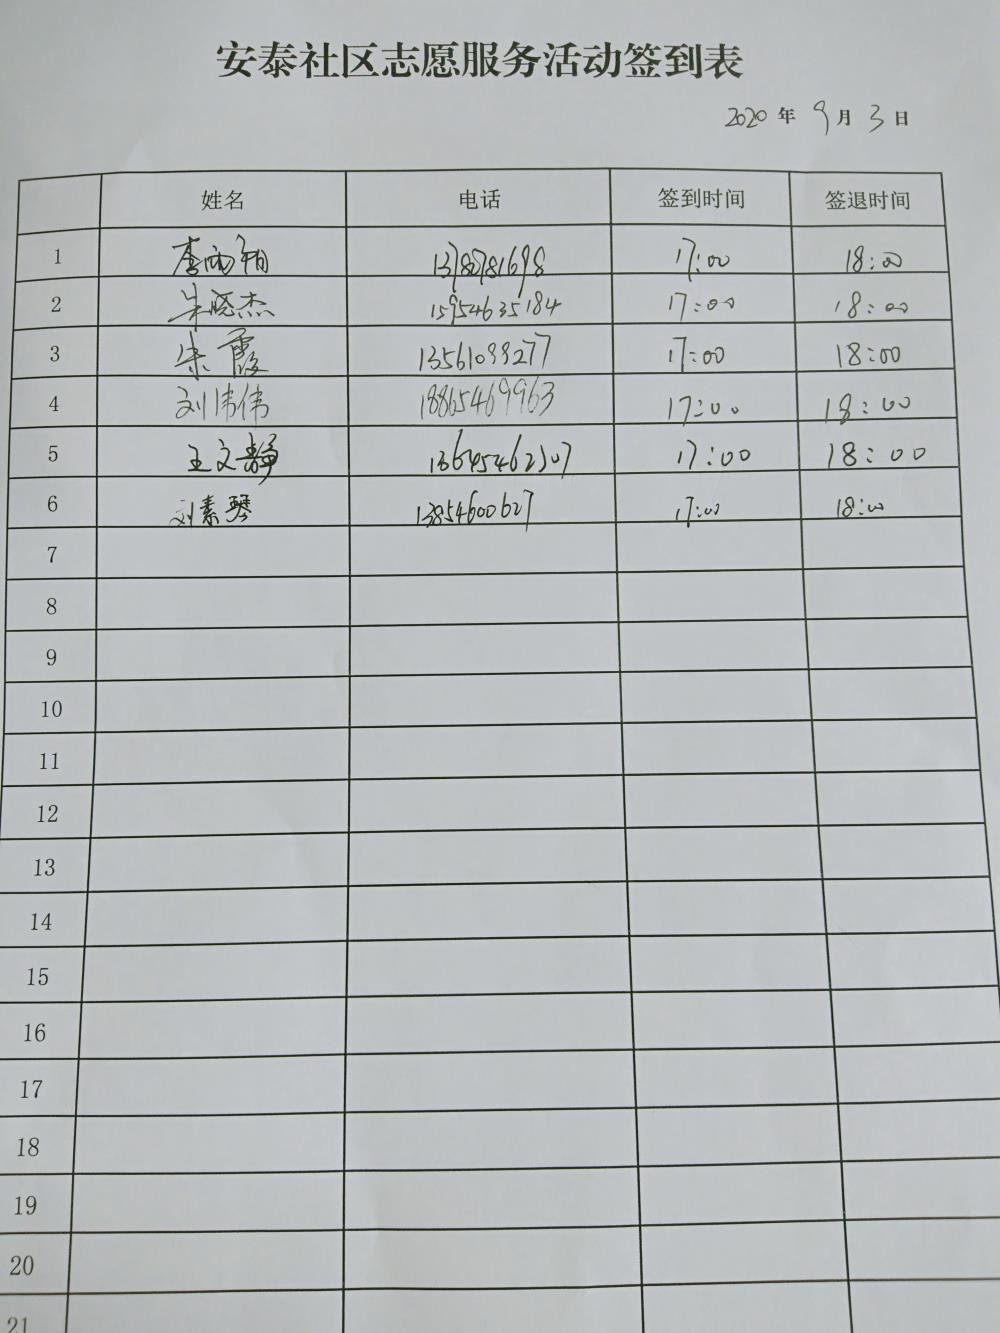 安泰社区志愿服务活动签到表
2020 年 9 月 3 日
姓名 电话 签到时间 签退时间
1 李雨 17:00 18:00
2 朱晓杰 15954635184 17:00 18:00
3 朱霞 13561099277 17:00 18:00
4 刘伟 18865469963 17:00 18:00
5 王文静 17:00 18:00
6 刘素琴 13854600627 17:00 18:00
7
8
9
10
11
12
13
14
15
16
17
18
19
20
21